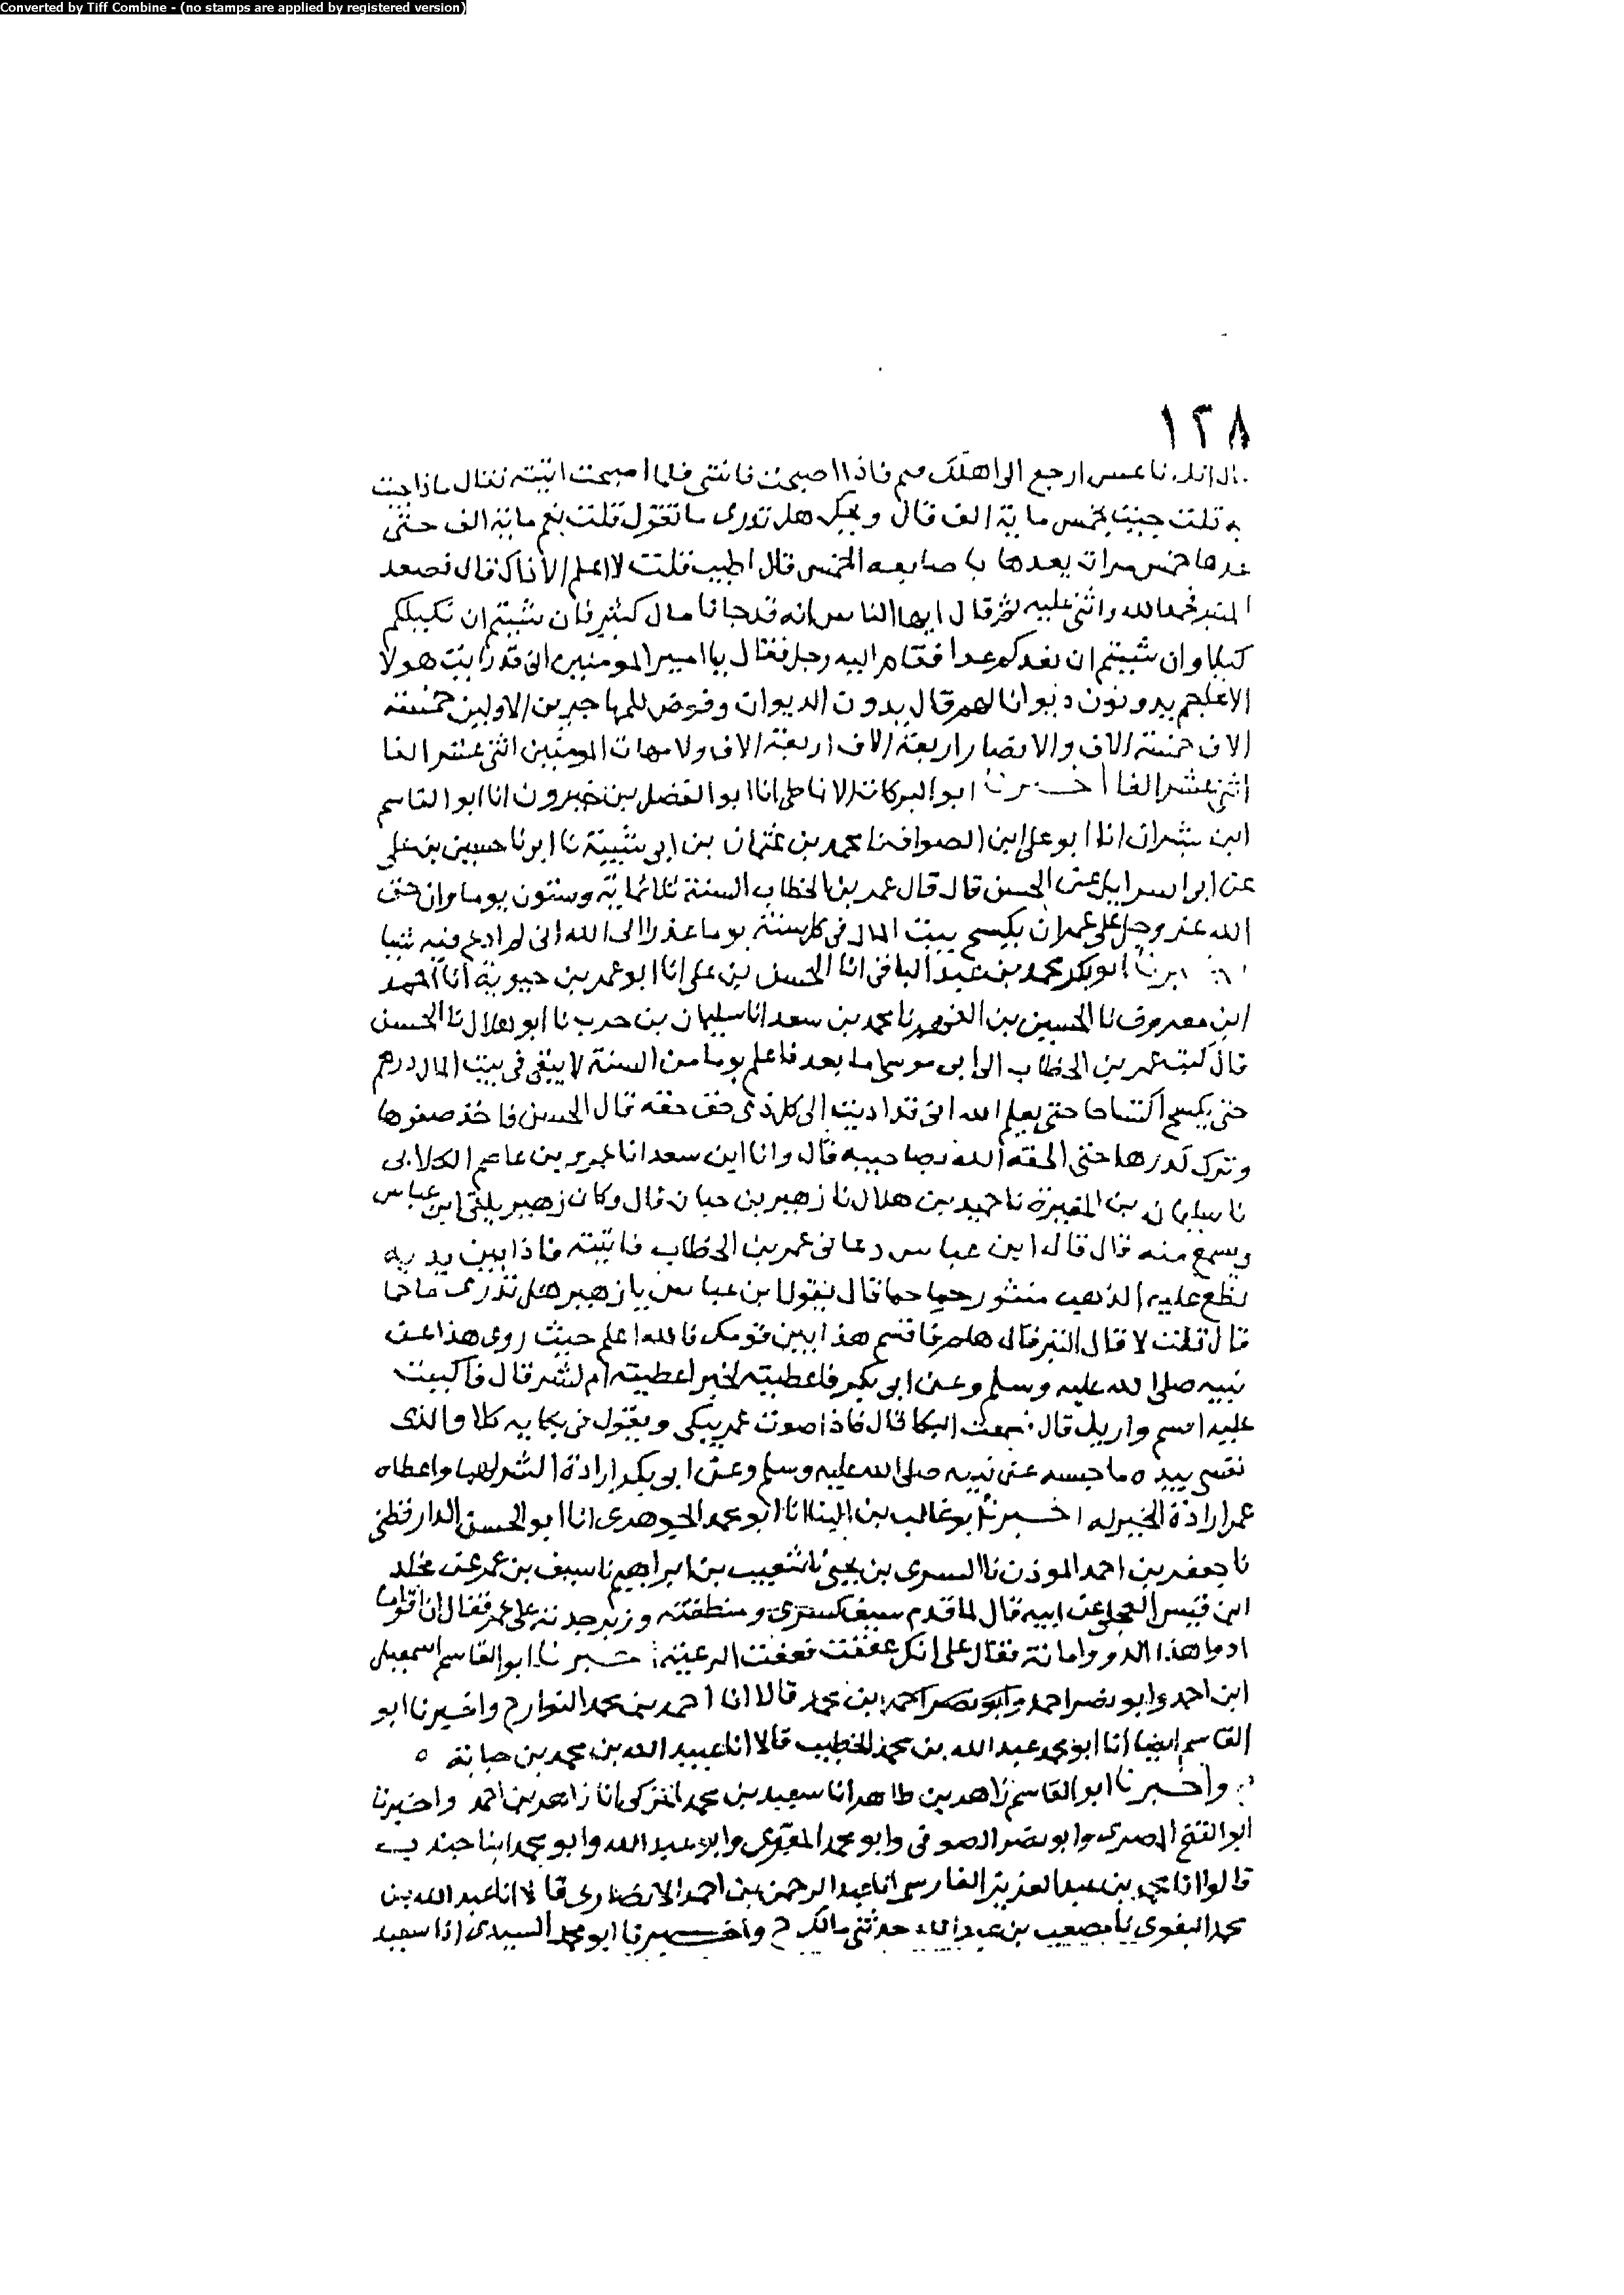 Converted by Tiff Combine - (no stamps are applied by registered version)
١٢٨
قال انك ناعس ارجع الى اهلك فنم فاذا اصبحت فائتنى فلما اصبحت اتيته فقال ماذا جيت
به قلت جيت بخمس ماية الف قال ويحك هل تدرى ما تقول قلت نعم ماية الف حتى
عدها خمس مرات يعدها باصابعه الخمس قال اطيب قلت لا اعلم الا ذاك قال فصعد
المنبر فحمد الله واثنى عليه ثم قال ايها الناس انه قد جانا مال كثير فان شيتم ان نكيلكم
كيلا وان شيتم ان نعدكم عدا فقام اليه رجل فقال يا امير المومنين انى قد رايت هولا
الاعاجم يدونون ديوانا لهم قال يدون الديوان وفرض للمهاجرين الاولين خمسة
الاف خمسة الاف والانصار اربعة الاف اربعة الاف ولامهات المومنين اثنى عشر الفا
اثنى عشر الفا اخبرنا ابو البركات الانماطى انا ابو الفضل بن خيرون انا ابو القاسم
ابن بشران انا ابو على ابن الصواف نا محمد بن عثمان بن ابى شيبة نا ابى نا حسين بن على
عن ابى اسرايل عن الحسن قال قال عمر بن الخطاب السنة ثلاثماية وستون يوما وان حق
الله عز وجل على عمر ان يكسح بيت المال فى كل سنة يوما عذرا الى الله انى لم ادع فيه شيا
اخبرنا ابو بكر محمد بن عبد الباقى انا الحسن بن على انا ابو عمر بن حيوية انا احمد
ابن معروف نا الحسين بن الفهم نا محمد بن سعد انا سليمان بن حرب نا ابو هلال نا الحسن
قال كتب عمر بن الخطاب الى ابى موسى اما بعد فاعلم يوما من السنة لا يبقى فى بيت المال درهم
حتى يكسح اكتساحا حتى يعلم الله انى قد اديت الى كل ذى حق حقه قال الحسن فاخذ صفوها
وترك كدرها حتى الحقه الله بصاحبيه قال وانا ابن سعد انا عمرو بن عاصم الكلابى
نا سليمان بن المغيرة نا حميد بن هلال نا زهير بن حيان قال وكان زهير يلقى ابن عباس
ويسمع منه قال قال ابن عباس دعانى عمر بن الخطاب فاتيته فاذا بين يديه
نطع عليه الذهب منثور حما حما قال يقول ابن عباس يا زهير هل تدرى ما حما
قال قلت لا قال التبر قال هلم فاقسم هذا بين قومك فالله اعلم حيث زوى هذا عن
نبيه صلى الله عليه وسلم وعن ابى بكر فاعطيته لخير اعطيته ام لشر قال فاكببت
عليه اقسم وازيل قال فسمعت البكا قال فاذا صوت عمر يبكى ويقول فى بكايه كلا والذى
نفسى بيده ما حبسه عن نبيه صلى الله عليه وسلم وعن ابى بكر ارادة الشر لهما واعطاه
عمر ارادة الخير له اخبرنا ابو غالب بن البنا انا ابو محمد الجوهرى انا ابو الحسن الدارقطنى
نا جعفر بن احمد الموذن نا السرى بن يحيى نا شعيب بن ابراهيم نا سيف بن عمر عن مخلد
ابن قيس العجلى عن ابيه قال لما قدم سيف كسرى ومنطقته وزبرجدته على عمر فقال ان اقواما
ادوا هذا لذووا امانة فقال على انك عففت فعفت الرعية اخبرنا ابو القاسم اسمعيل
ابن احمد وابو نصر احمد وابو نصر احمد بن محمد قالا انا احمد بن محمد النقور ح واخبرنا ابو
القاسم ايضا انا ابو محمد عبد الله بن محمد الخطيب قالا انا عبيد الله بن محمد بن حبابة ه
واخبرنا ابو القاسم زاهر بن طاهر انا سعيد بن محمد المزكى انا زاهر بن احمد واخبرنا
ابو الفتح المصرى وابو نصر الصوفى وابو محمد المقرى وابو عبد الله وابو محمد ابنا جندب
قالوا انا محمد بن عبد العزيز الفارسى انا عبد الرحمن بن احمد الانصارى قالا انا عبد الله بن
محمد البغوى نا مصعب بن عبد الله حدثنى مالك ح واخبرنا ابو محمد السيدى انا سعيد